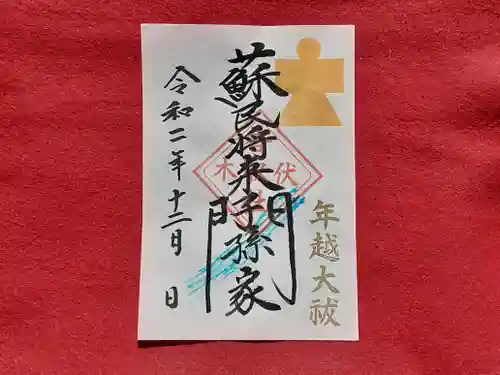 年越大祓
蘇民将来子孫家
門
伏木
令和二年十二月 日